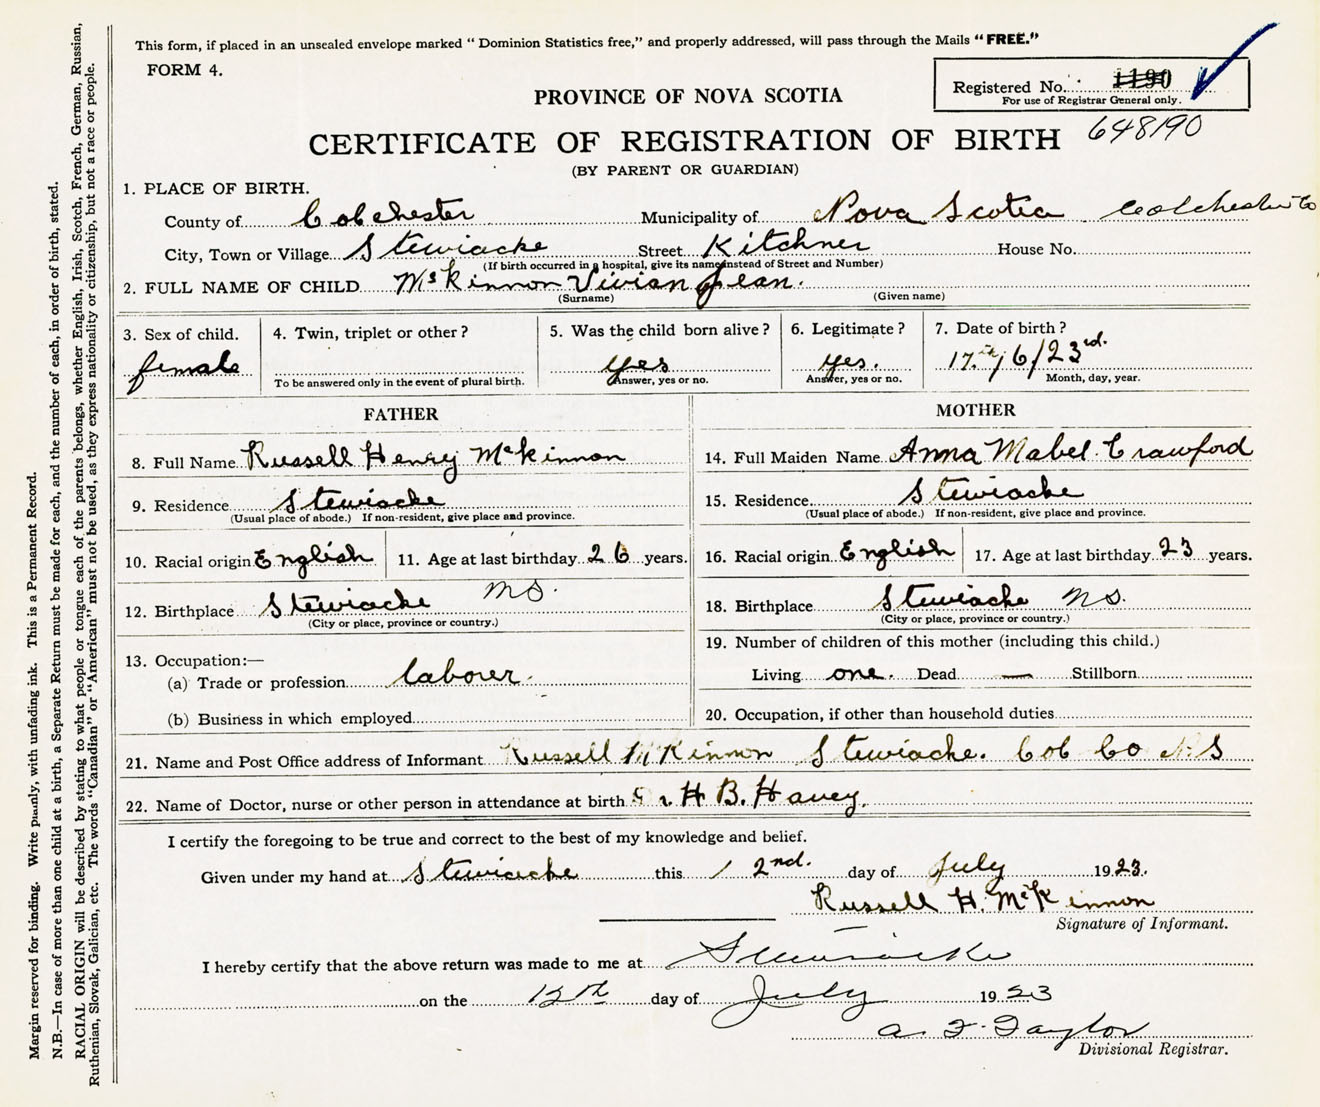 This form, if placed in an unsealed envelope marked “ Dominion Statistics free,” and properly addressed, will pass through the Mails “ FREE.”
FORM 4.
Registered No. 1190
For use of Registrar General only.
PROVINCE OF NOVA SCOTIA
648190
CERTIFICATE OF REGISTRATION OF BIRTH
(BY PARENT OR GUARDIAN)
1. PLACE OF BIRTH.
County of Colchester Municipality of Nova Scotia Colchester Co
City, Town or Village Stewiacke Street Kitchner House No.
(If birth occurred in a hospital, give its name instead of Street and Number)
2. FULL NAME OF CHILD McKinnon Vivian Jean.
(Surname) (Given name)
3. Sex of child. 4. Twin, triplet or other ? 5. Was the child born alive ? 6. Legitimate ? 7. Date of birth ?
female yes yes. 17th/6/23rd.
To be answered only in the event of plural birth. Answer, yes or no. Answer, yes or no. Month, day, year.
FATHER MOTHER
8. Full Name Russell Henry McKinnon 14. Full Maiden Name Anna Mabel Crawford
9. Residence Stewiacke 15. Residence Stewiacke
(Usual place of abode.) If non-resident, give place and province. (Usual place of abode.) If non-resident, give place and province.
10. Racial origin English 11. Age at last birthday 26 years. 16. Racial origin English 17. Age at last birthday 23 years.
12. Birthplace Stewiacke NS. 18. Birthplace Stewiacke NS.
(City or place, province or country.) (City or place, province or country.)
19. Number of children of this mother (including this child.)
13. Occupation:—
(a) Trade or profession laborer. Living one. Dead — Stillborn
(b) Business in which employed 20. Occupation, if other than household duties
21. Name and Post Office address of Informant Russell McKinnon Stewiacke. Col Co N.S
22. Name of Doctor, nurse or other person in attendance at birth Dr. H B. Havey.
I certify the foregoing to be true and correct to the best of my knowledge and belief.
Given under my hand at Stewiacke this 2nd. day of July 1923.
Russell H. McKinnon
Signature of Informant.
I hereby certify that the above return was made to me at Stewiacke
on the 12th day of July 1923
A. F. Taylor
Divisional Registrar.
Margin reserved for binding. Write plainly, with unfading ink. This is a Permanent Record.
N.B.—In case of more than one child at a birth, a Separate Return must be made for each, and the number of each, in order of birth, stated.
RACIAL ORIGIN will be described by stating to what people or tongue each of the parents belongs, whether English, Irish, Scotch, French, German, Russian,
Ruthenian, Slovak, Galician, etc. The words “Canadian” or “American” must not be used, as they express nationality or citizenship, but not a race or people.